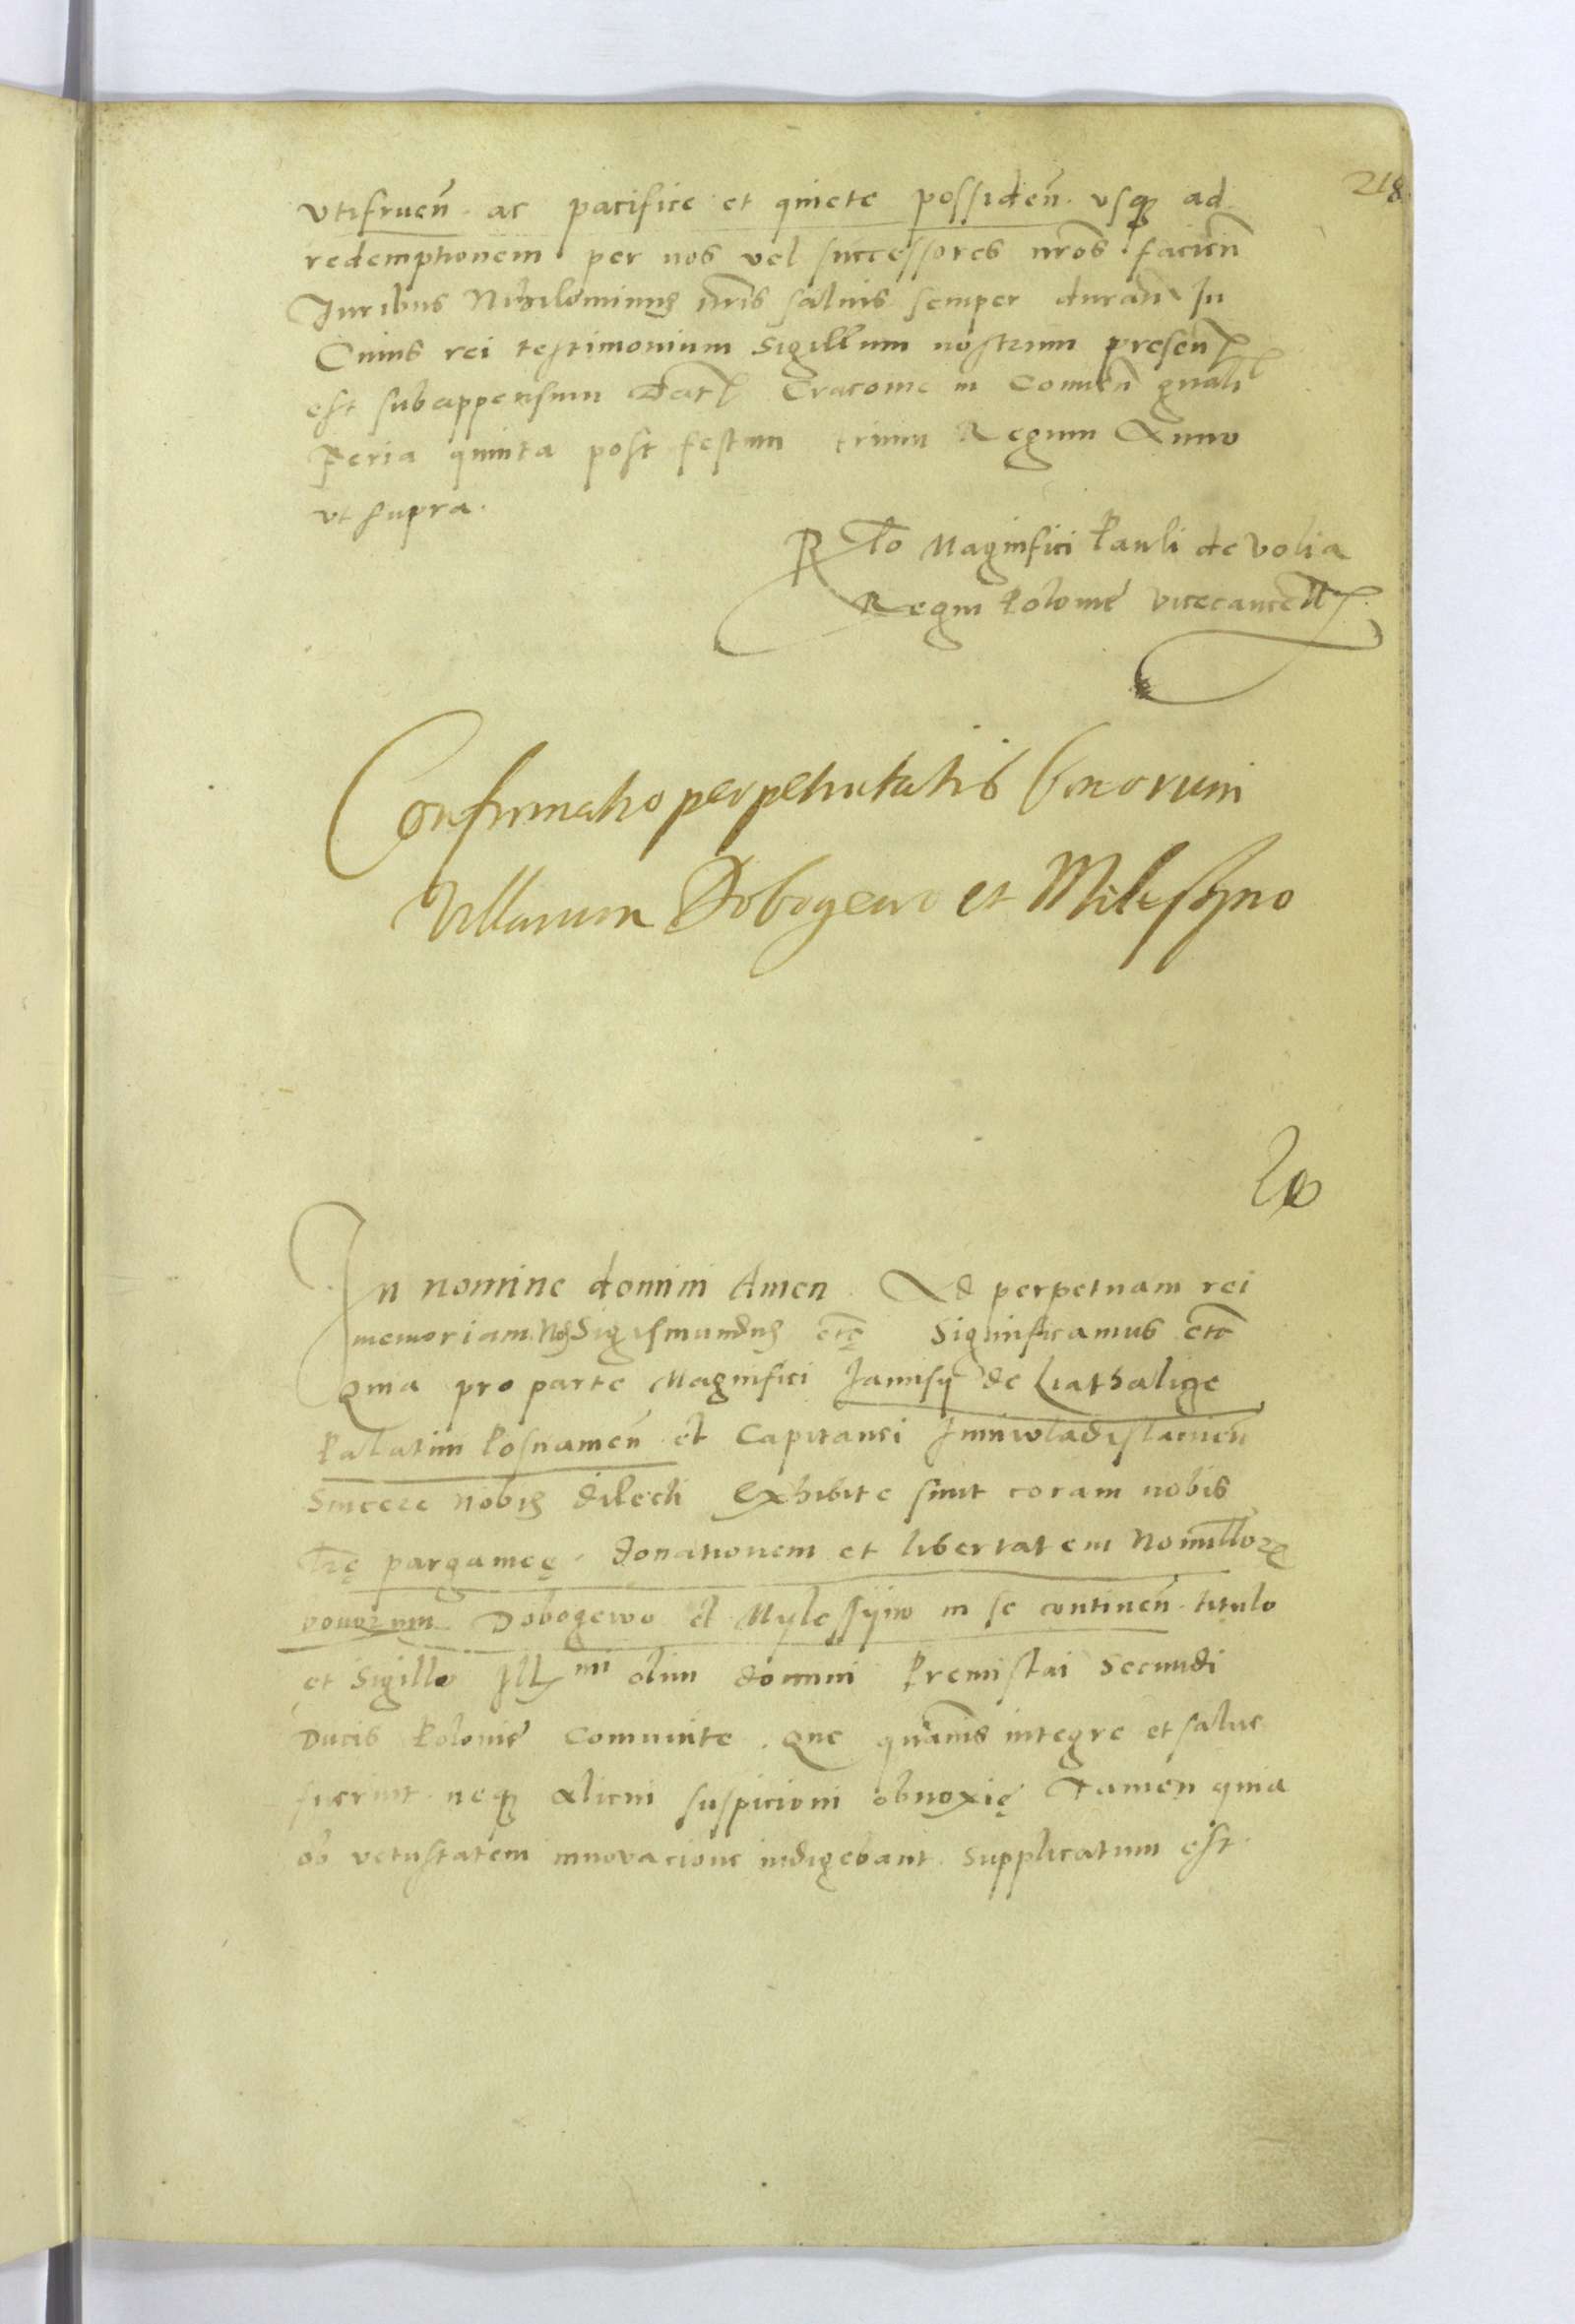 218
vtifruen̄. ac pacifice et quiete possiden̄. vsq₃ ad
redemptionem per nos vel successores nr̄os facien̄
Juribus Nihilominus nr̄is saluis semper duran̄ In
Cuius rei testimonium Sigillum nostrum presen
est subappensum Dat Cracouie in Conuen̄ gn̄ali
Feria quinta post festum trium Regum Anno
vt supra.
R̄lo Magnifici Pauli de Volia
Regni Polonie vicecancell
Confirmatio perpetuitatis bonorum
Villarum Dobogewo et Milessyno
In nomine domini Amen. Ad perpetuam rei
memoriam Nos Sigismundus etc̄ Significamus etc̄
Quia pro parte Magnifici Janusij de Lathalice
Palatini Posnanien̄ et Capitanei Juniwladislauien̄
Sincere nobis dilecti Exhibite sunt coram nobis
lr̄e pargamee. donationem et libertatem Nonnullor
bonorum Dobogewo et Mylessyno in se continen̄ titulo
et Sigillo Ill mi olim domini Premislai Secundi
Ducis Polonie Communite. Que quāuis integre et salue
fuerint neq₃ alicui suspicioni obnoxie Tamen quia
ob vetustatem innovacione indigebant. Supplicatum est.